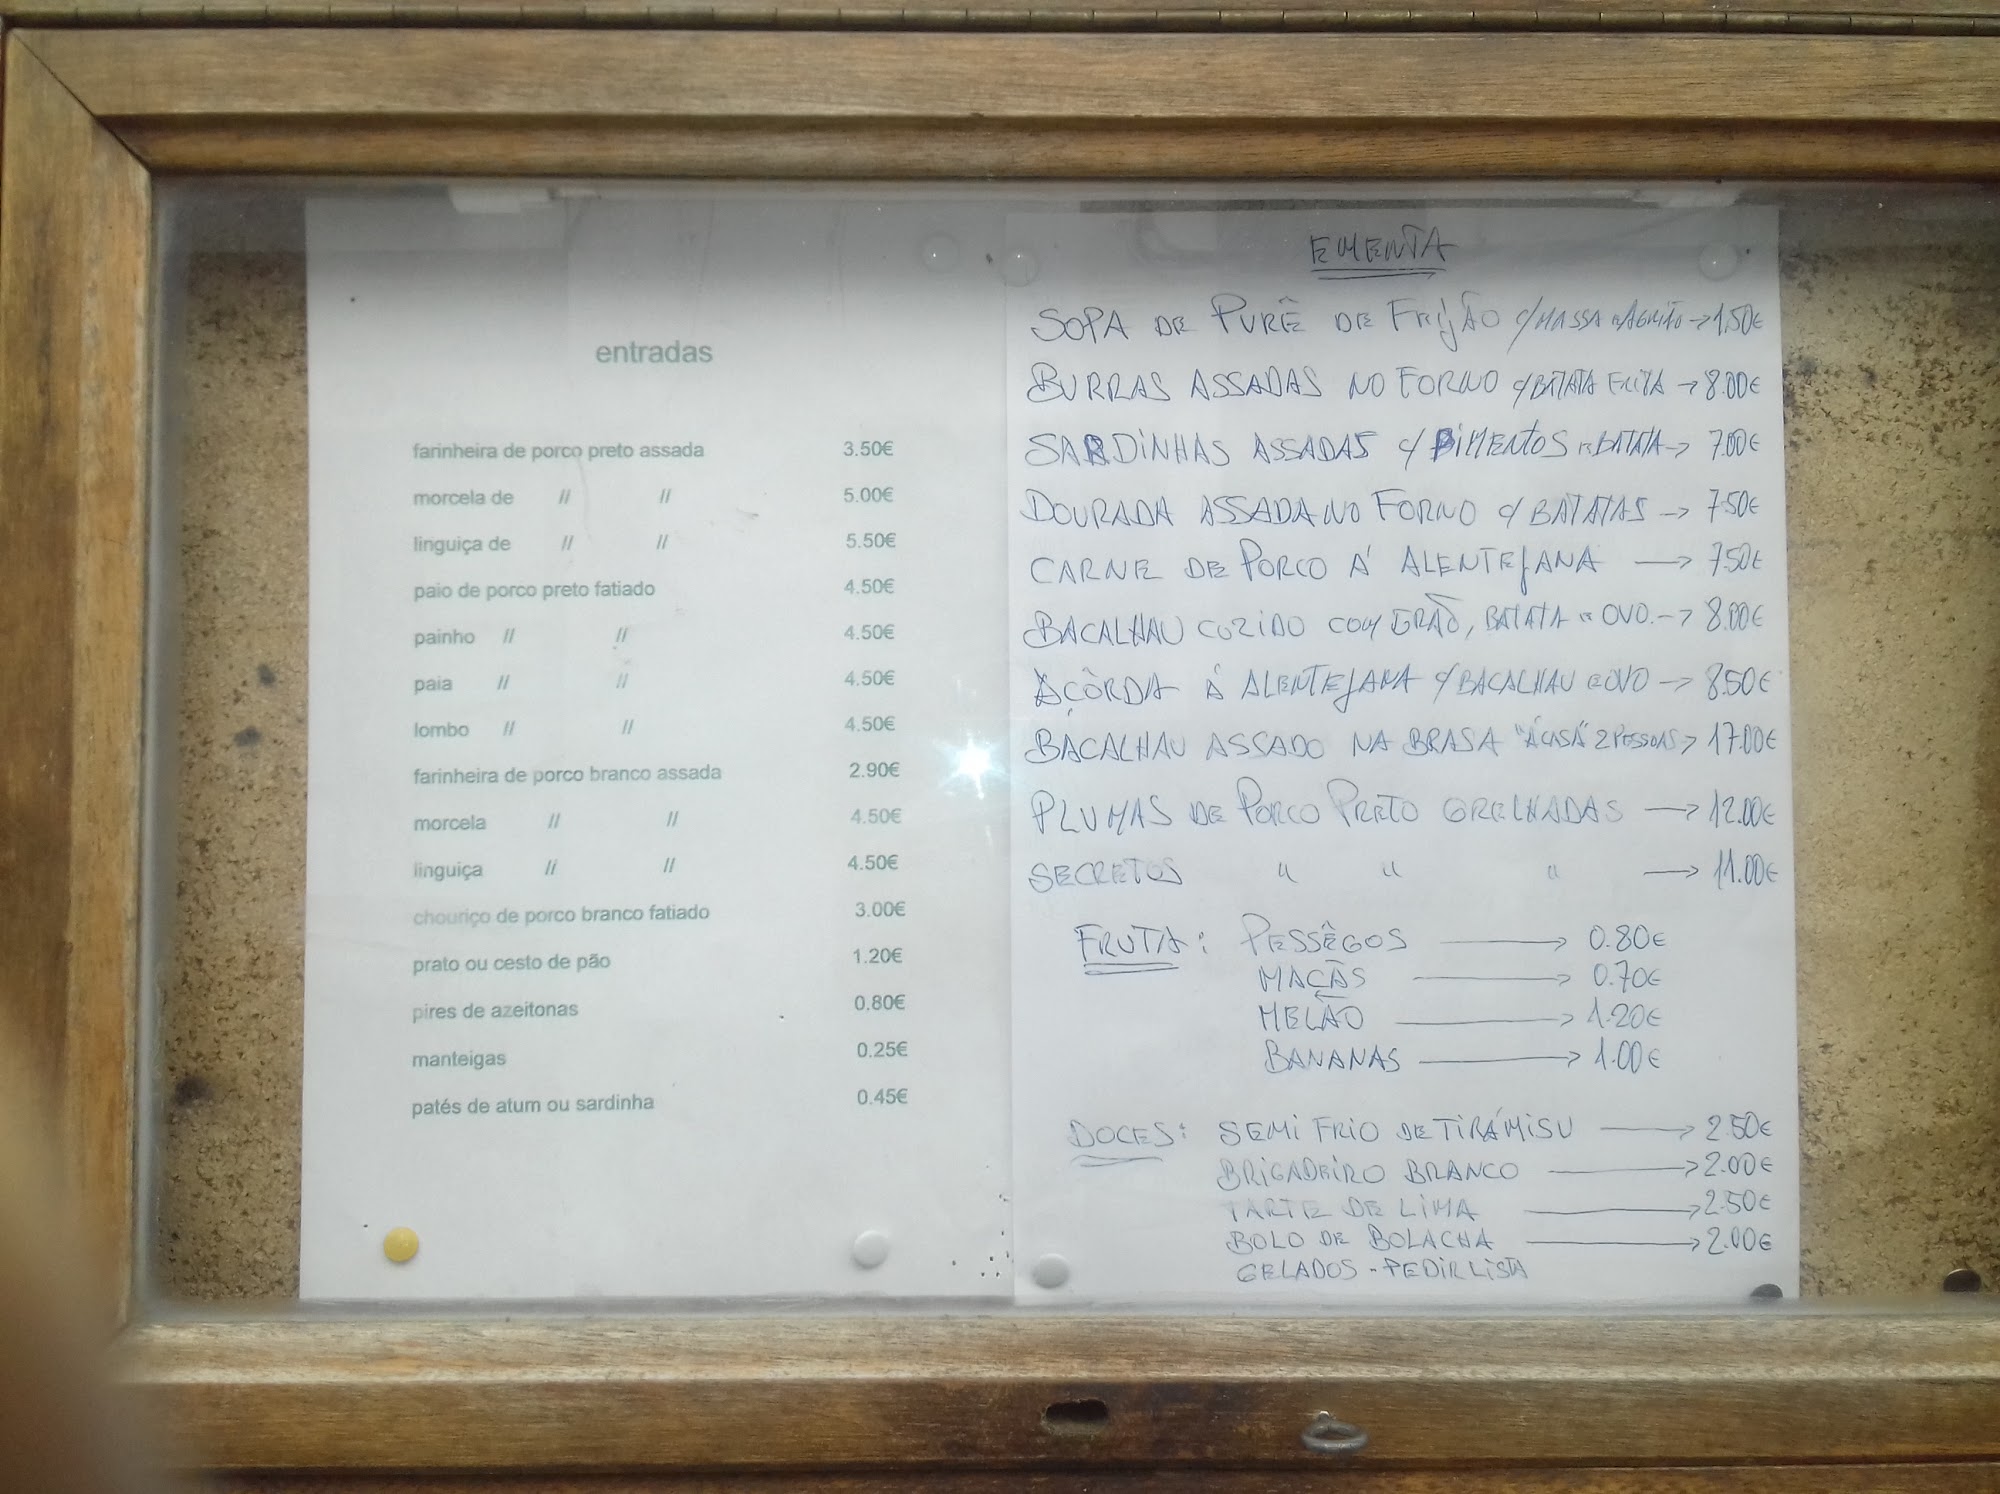 entradas
farinheira de porco preto assada 3.50€
morcela de // // 5.00€
linguiça de // // 5.50€
paio de porco preto fatiado 4.50€
painho // // 4.50€
paia // // 4.50€
lombo // // 4.50€
farinheira de porco branco assada 2.90€
morcela // // 4.50€
linguiça // // 4.50€
chouriço de porco branco fatiado 3.00€
prato ou cesto de pão 1.20€
pires de azeitonas 0.80€
manteigas 0.25€
patés de atum ou sardinha 0.45€
EMENTA
SOPA DE PURÊ DE FEIJÃO C/MASSA E AGRIÃO → 1.50€
BURRAS ASSADAS NO FORNO C/BATATA FRITA → 8.00€
SARDINHAS ASSADAS C/ PIMENTOS E BATATA → 7.00€
DOURADA ASSADA NO FORNO C/ BATATAS → 7.50€
CARNE DE PORCO Á ALENTEJANA → 7.50€
BACALHAU COZIDO COM GRÃO, BATATA E OVO. → 8.00€
AÇÔRDA Á ALENTEJANA C/BACALHAU E OVO → 8.50€
BACALHAU ASSADO NA BRASA "Á CASA" 2 PESSOAS > 17.00€
PLUMAS DE PORCO PRETO GRELHADAS → 12.00€
SECRETOS " " " → 11.00€
FRUTA: PESSÊGOS → 0.80€
MAÇÃS → 0.70€
MELÃO → 1.20€
BANANAS → 1.00€
DOCES: SEMI FRIO DE TIRÁMISU → 2.50€
BRIGADEIRO BRANCO → 2.00€
TARTE DE LIMA → 2.50€
BOLO DE BOLACHA → 2.00€
GELADOS - PEDIR LISTA